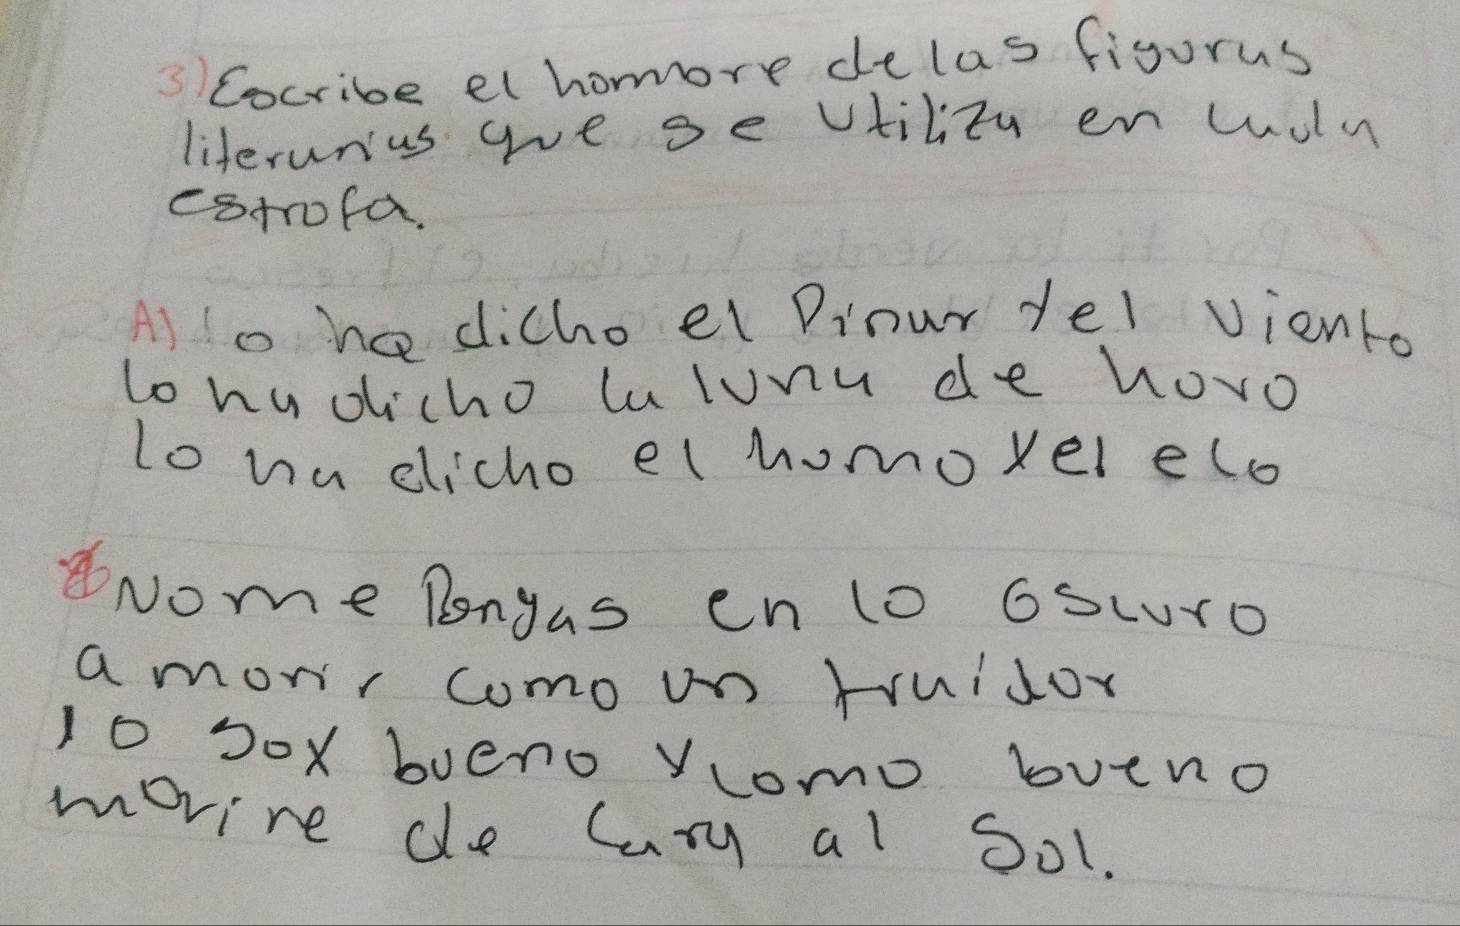 3) Escribe el hombre de las figuras
literarias que se utiliza en cada
estrofa.
A) lo ha dicho el Pinar yel viento
lo ha dicho la luna de horo
lo ha dicho el humo yel eco
No me Pongas en lo oscuro
a morir como un traidor
yo soy bueno y como bueno
morire de cara al Sol.